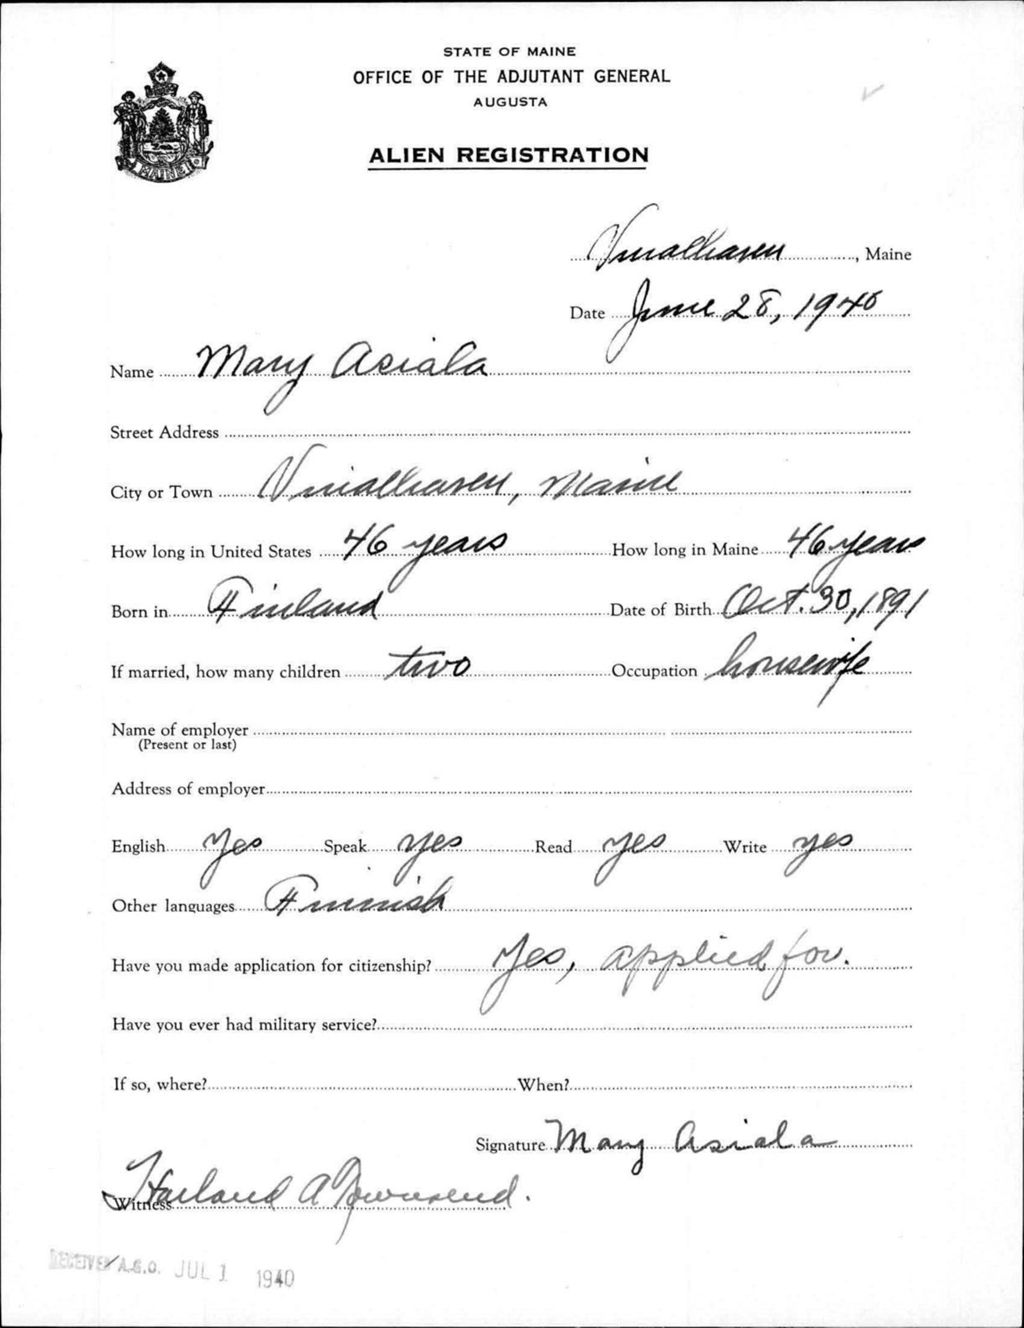 STATE OF MAINE
OFFICE OF THE ADJUTANT GENERAL
AUGUSTA
ALIEN REGISTRATION
MAINE
Vinalhaven, Maine
Date June 28, 1940
Name Mary Asiala
Street Address
City or Town Vinalhaven, Maine
How long in United States 46 years How long in Maine 46 years
Born in Finland Date of Birth Oct. 30, 1891
If married, how many children two Occupation housewife
Name of employer
(Present or last)
Address of employer
English Yes Speak yes Read yes Write yes
Other languages Finnish
Have you made application for citizenship? Yes, applied for.
Have you ever had military service?
If so, where? When?
Signature Mary Asiala
Witness Harland A Townsend.
RECEIVED A.G.O. JUL 1 1940